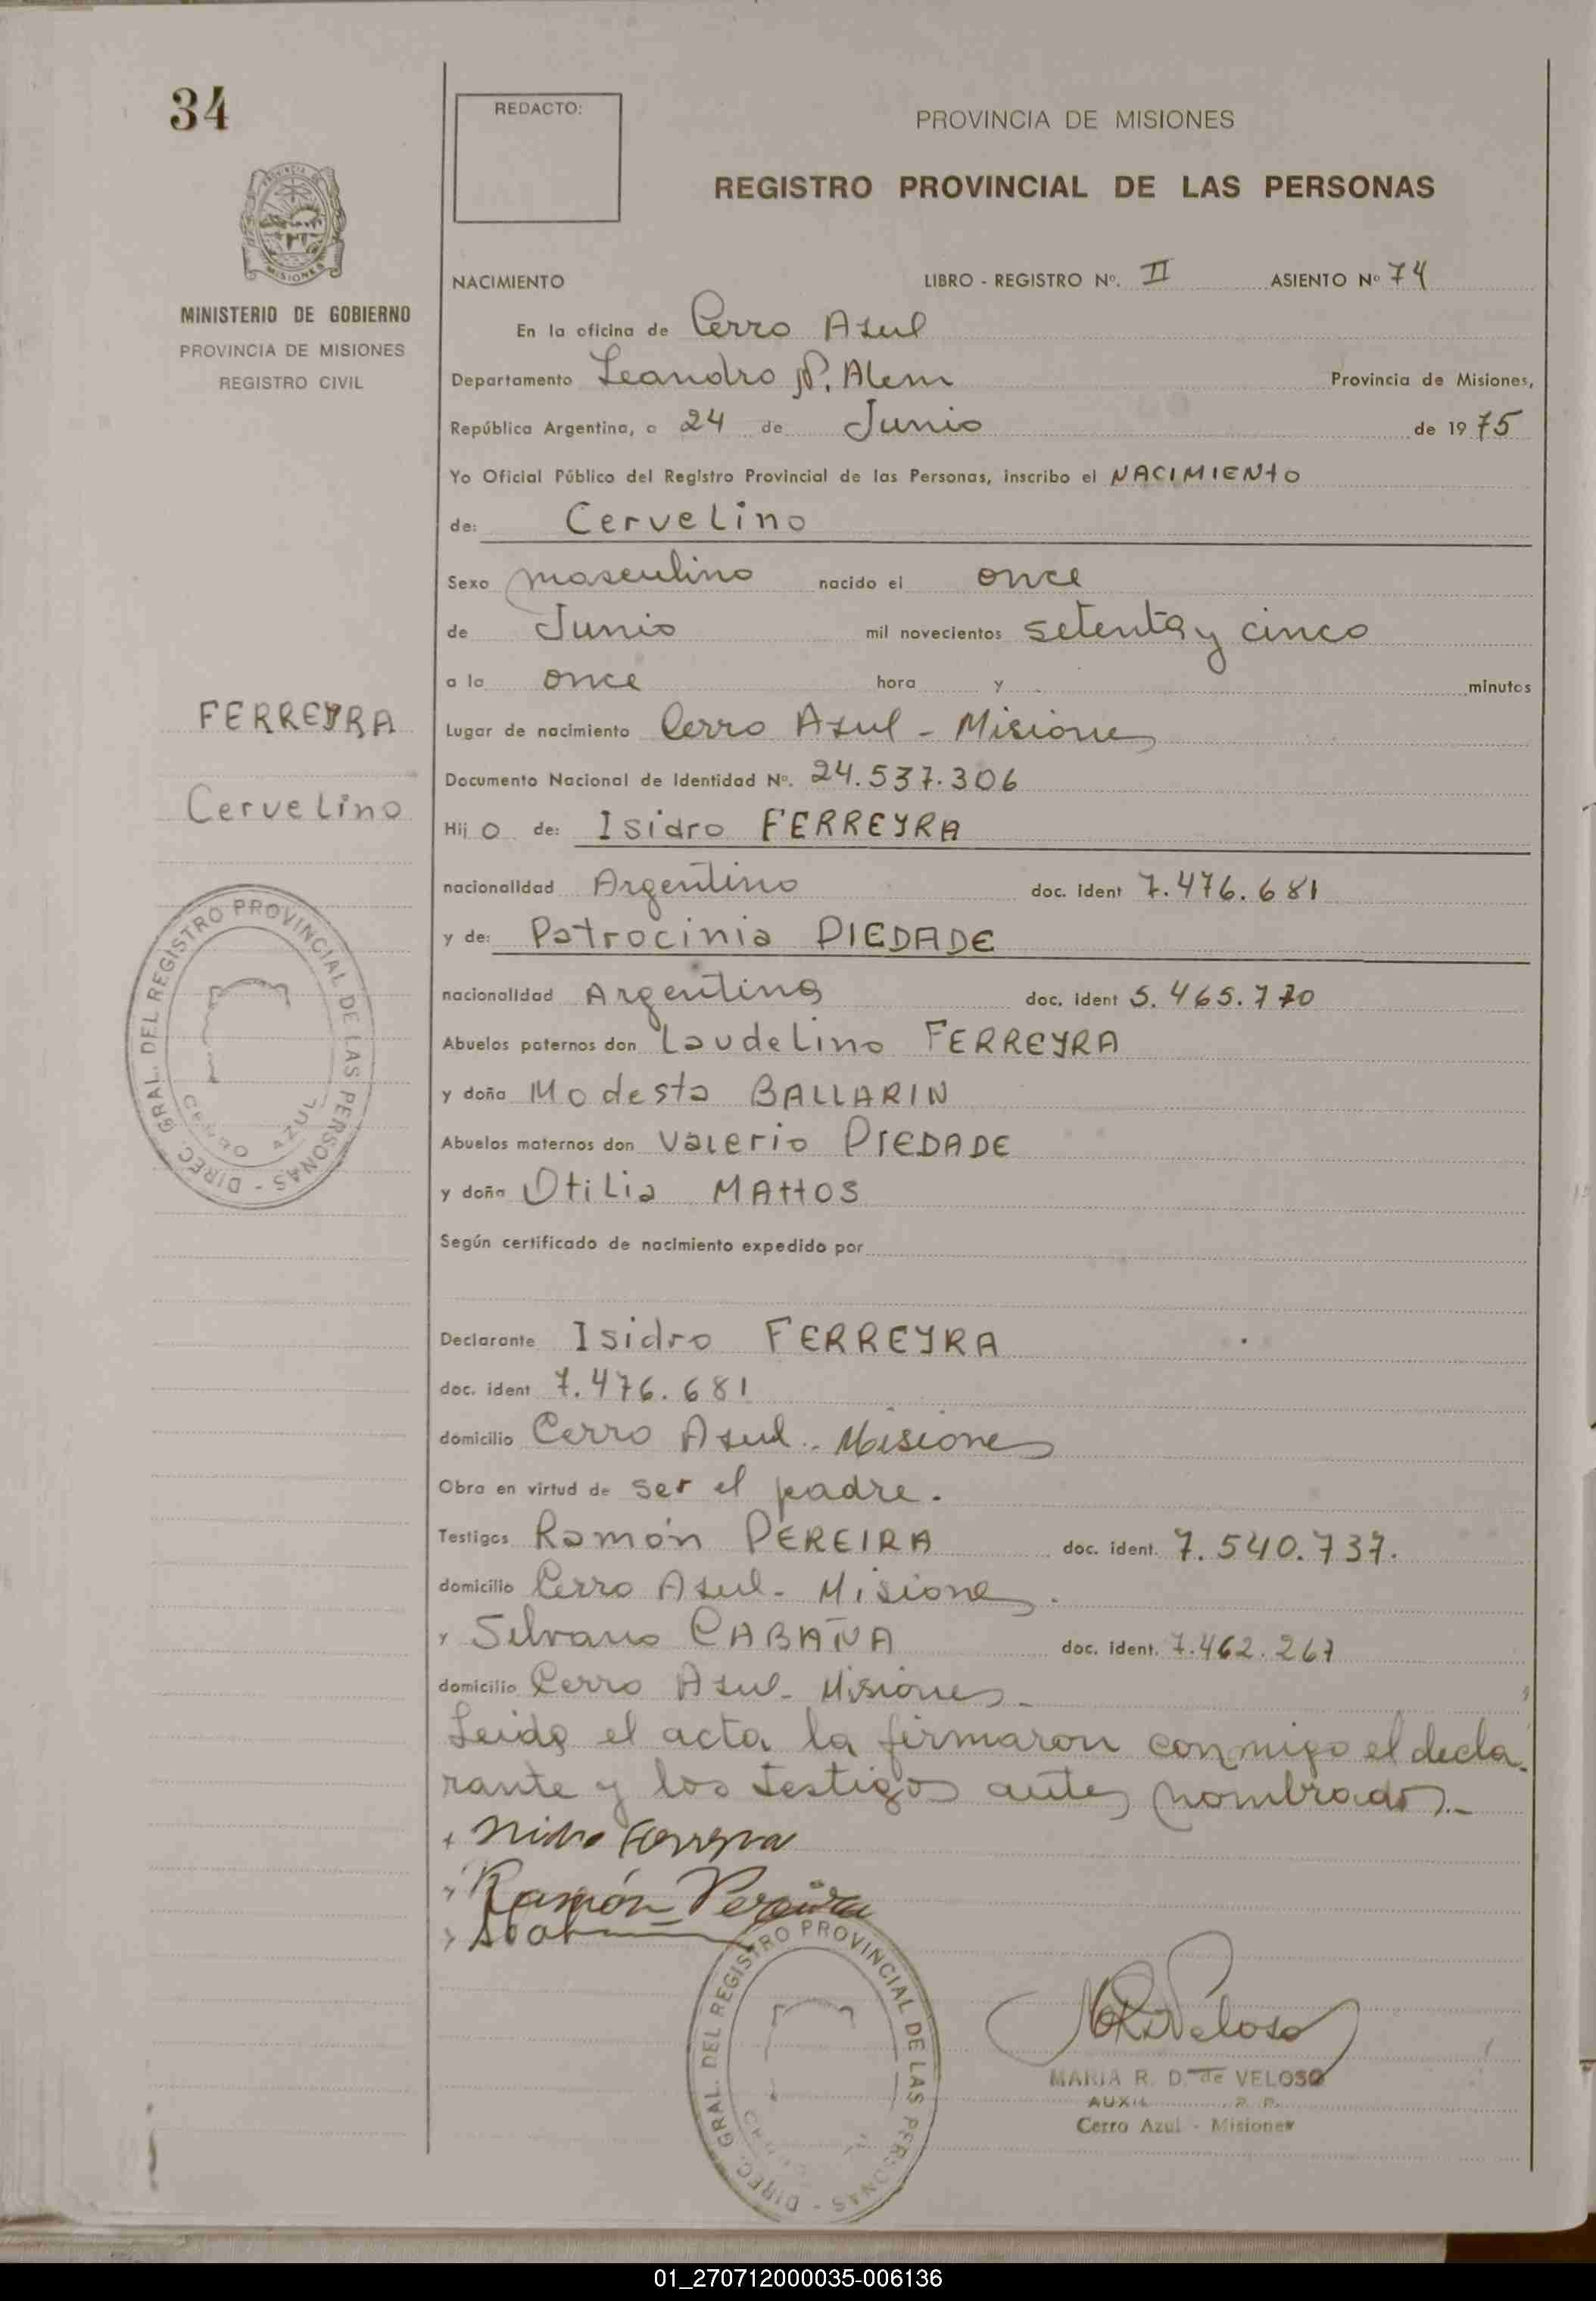 34
REDACTO:
PROVINCIA DE MISIONES
REGISTRO PROVINCIAL DE LAS PERSONAS
MISIONES
MINISTERIO DE GOBIERNO
PROVINCIA DE MISIONES
REGISTRO CIVIL
NACIMIENTO LIBRO - REGISTRO Nº. II ASIENTO Nº 74
En la oficina de Cerro Azul
Departamento Leandro N. Alem Provincia de Misiones,
República Argentina, a 24 de Junio de 1975
Yo Oficial Público del Registro Provincial de las Personas, inscribo el NACIMIENTO
de: Cervelino
Sexo masculino nacido el once
de Junio mil novecientos setenta y cinco
a la once hora y minutos
FERREYRA
Cervelino
Lugar de nacimiento Cerro Azul - Misiones
Documento Nacional de Identidad Nº. 24.537.306
Hij o de: Isidro FERREYRA
nacionalidad Argentino doc. ident 7.476.681
y de: Patrocinia PIEDADE
nacionalidad Argentina doc. ident 5.465.770
Abuelos paternos don Laudelino FERREYRA
y doña Modesta BALLARIN
Abuelos maternos don Valerio PIEDADE
y doña Otilia MATTOS
DIREC. GRAL. DEL REGISTRO PROVINCIAL DE LAS PERSONAS -
CERRO AZUL
Según certificado de nacimiento expedido por
Declarante Isidro FERREYRA
doc. ident 7.476.681
domicilio Cerro Azul - Misiones
Obra en virtud de ser el padre.
Testigos Ramón PEREIRA doc. ident. 7.540.737.
domicilio Cerro Azul - Misiones.
y Silvano CABAÑA doc. ident. 7.462.267
domicilio Cerro Azul - Misiones -
Leida el acta la firmaron conmigo el decla-
rante y los testigos antes nombrados.-
Ferreyra
Ramón Pereira
DIREC. GRAL. DEL REGISTRO PROVINCIAL DE LAS PERSONAS -
Veloso
MARIA R. D. de VELOSO
AUXIL
Cerro Azul - Misiones
01_270712000035-006136